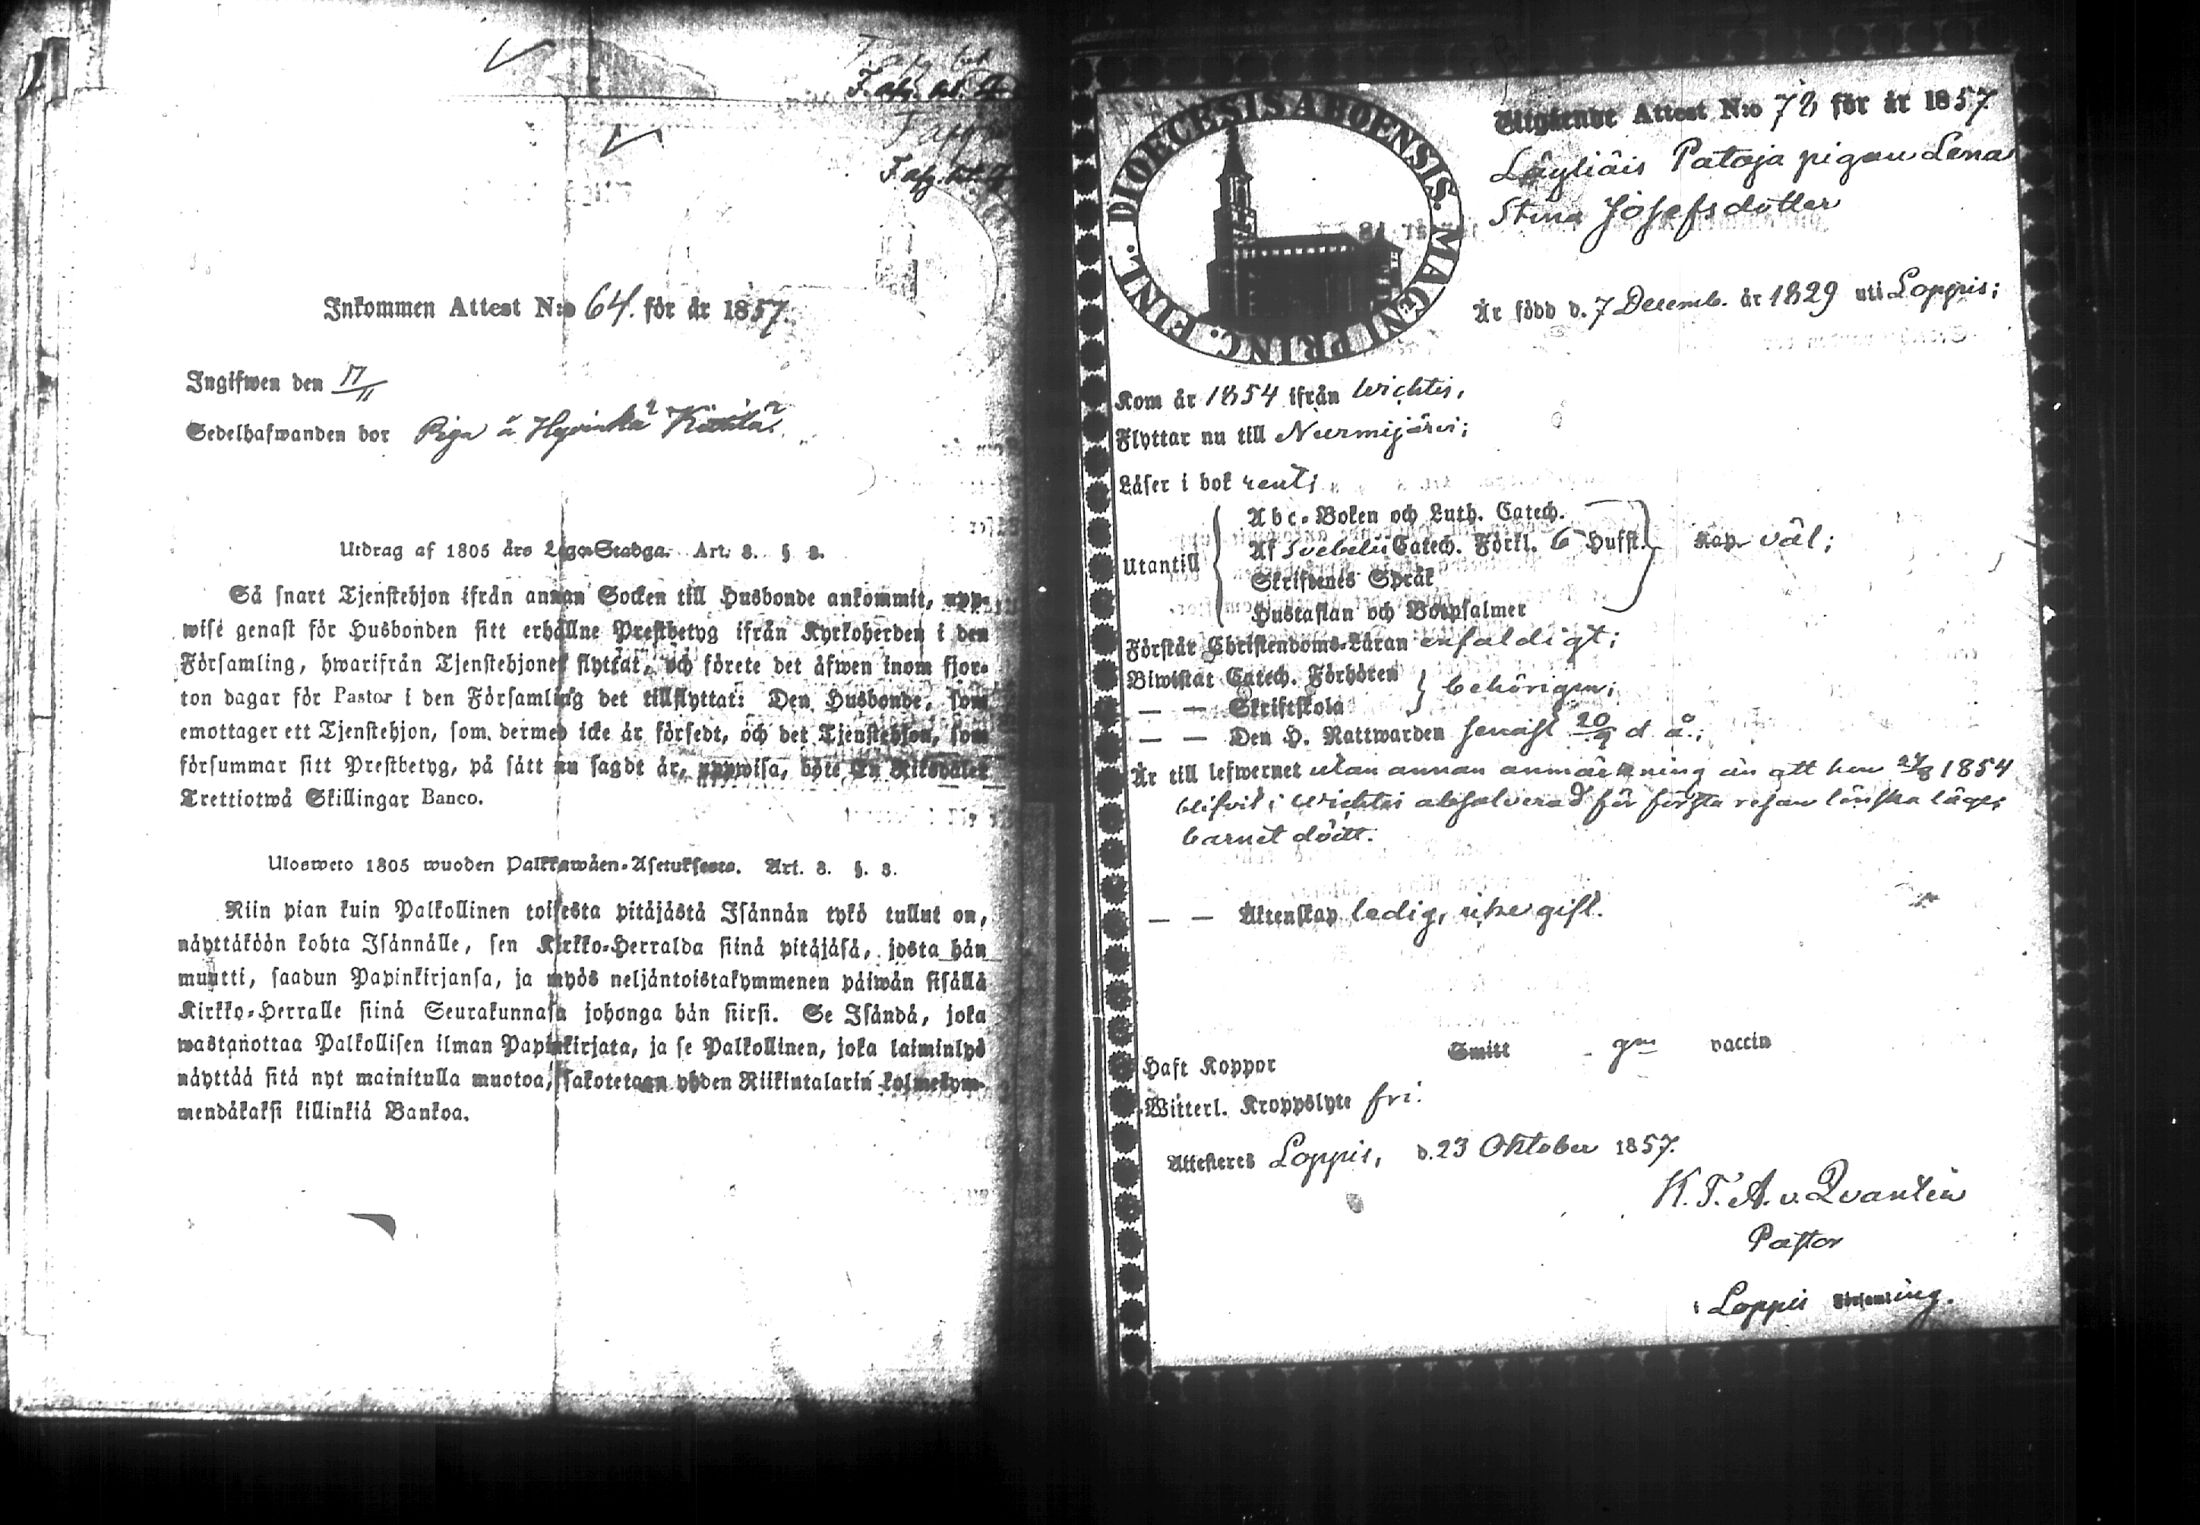 F. afg. bet. g.
F. afg. bet. g.
Inkommen Attest N:o 64. för år 1857.
Ingifwen den 17/11
Sedelhafwanden bor Piga å Hyvinkä Kittilä
Utdrag af 1805 års Lego-Stadga. Art. 3. § 3.
Så snart Tjenstehjon ifrån annan Socken till Husbonde ankommit, upp-
wise genast för Husbonden sitt erhållne Prestbetyg ifrån Kyrkoherden i den
Församling, hwarifrån Tjenstehjonet flyttat, och förete det äfwen inom fjor-
ton dagar för Pastor i den Församling det tillflyttat: Den Husbonde, som
emottager ett Tjenstehjon, som dermed icke är försedt, och det Tjenstehjon, som
försummar sitt Prestbetyg, på sätt nu sagdt är, uppwisa, böte En Riksdaler
Trettiotwå Skillingar Banco.
Ulosweto 1805 wuoden Palkkawäen-Asetuksesta. Art. 3. §. 3.
Niin pian kuin Palkollinen toisesta pitäjästä Isännän tykö tullut on,
näyttäköön kohta Isännälle, sen Kirkko-Herralda siinä pitäjäsä, josta hän
muutti, saadun Papinkirjansa, ja myös neljäntoistakymmenen päiwän sisällä
Kirkko-Herralle siinä Seurakunnasa johonga hän siirsi. Se Isändä, joka
wastanottaa Palkollisen ilman Papinkirjata, ja se Palkollinen, joka laiminlyö
näyttää sitä nyt mainitulla muotoa, sakotetaan yhden Riikintalarin kolmekym-
mendäkaksi killinkiä Bankoa.
DIOECESIS ABOENSIS. MAGNI PRINC. FINL.
Utgående Attest N:o 78 för år 1857
Läyliäis Pataja pigan Lena
Stina Josefsdotter
Är född d. 7 Decemb. år 1829 uti Loppis;
Kom år 1854 ifrån Wichtis,
Flyttar nu till Nurmijärvi;
Läser i bok rent;
Utantill
Abc-Boken och Luth. Catech.
Af Svebelii Catech. Förkl. 6 Hufst. kap. väl;
Skriftenes Språk
Hustaflan och Botpsalmer
Förstår Christendoms-Läran enfaldigt;
Biwistat Catech. Förhören
— — Skriftskola behörigen;
— — Den H. Nattwarden senast 20/9 d. å.;
Är till lefwernet utan annan anmärkning än att hon 27/8 1854
blifvit i Wichtis absolverad för första resan lönska läge;
barnet dödt.
— — Äktenskap ledig, icke gift.
Haft Koppor Smitt - gm vaccin
Witterl. Kroppslyte fri.
Attesteres Loppis, d. 23 Oktober 1857.
K. T. A. v. Qvanten
Pastor
i Loppis Församling.